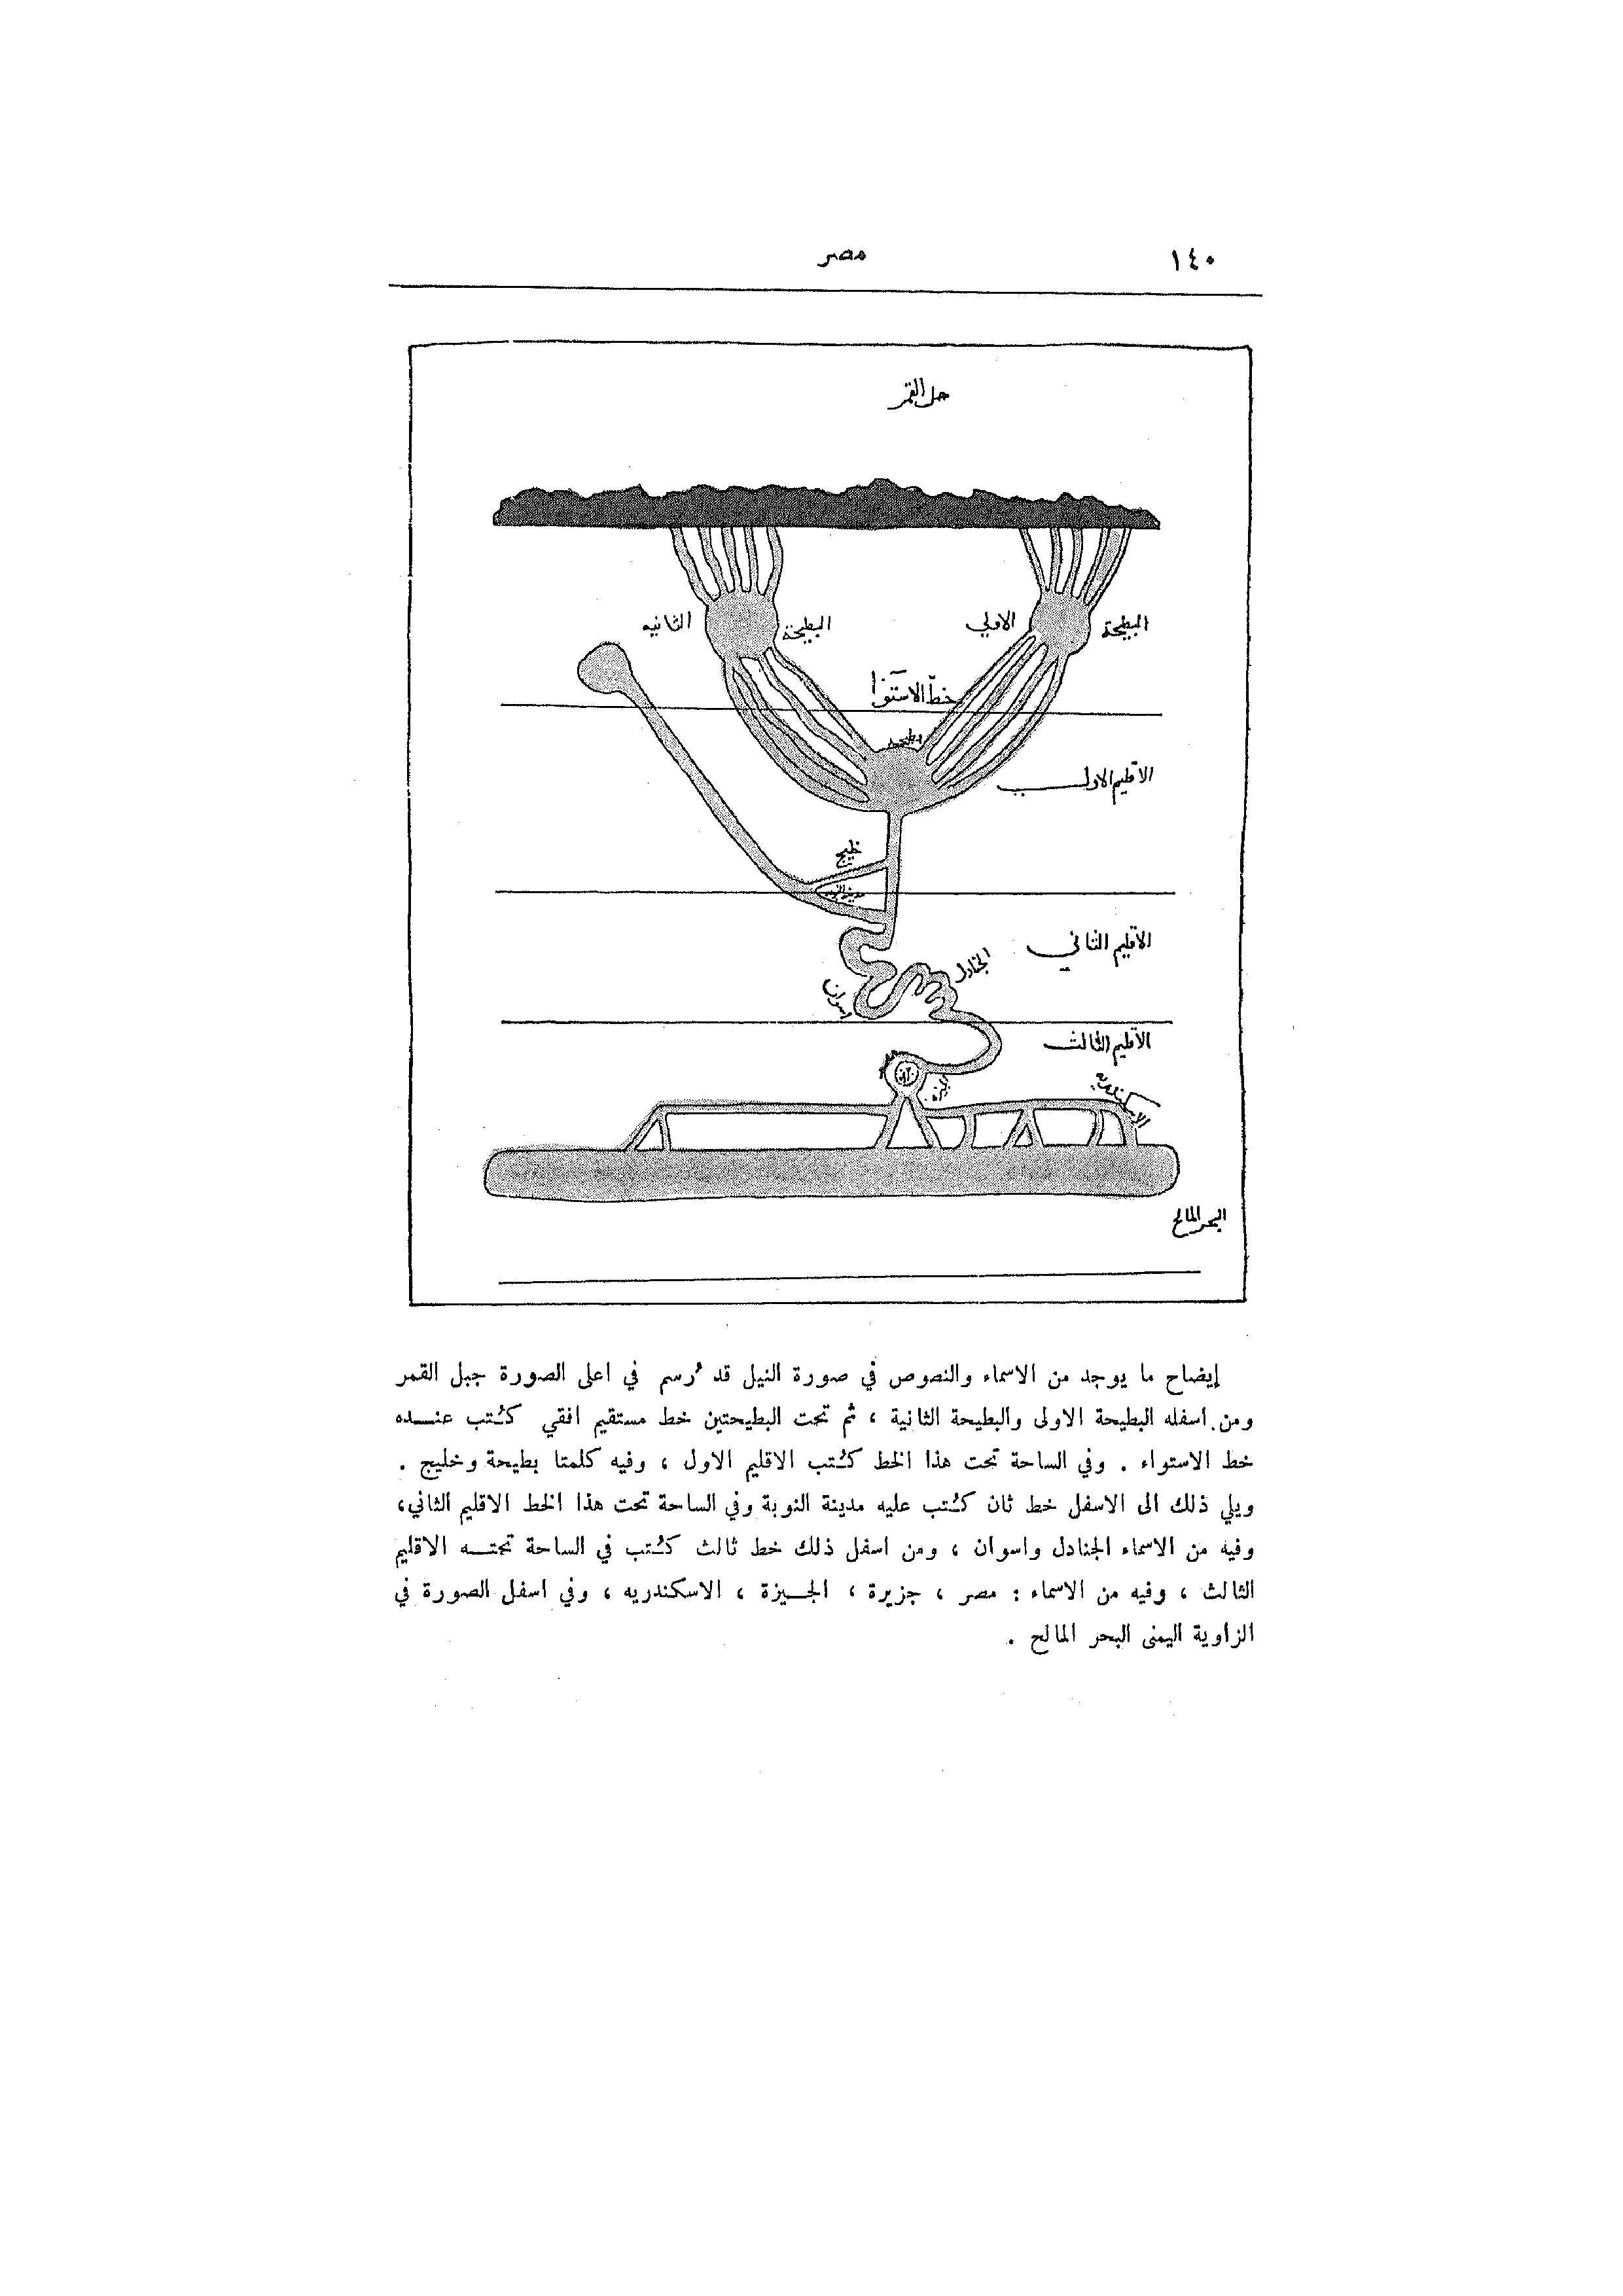 ١٤٠
مصر
جبل القمر
البطيحة
الاولي
البطيحة
الثانيه
خط الاستوا
بطيحه
الاقليم الاول
خليج
مدينة النوبه
الاقليم الثاني
الجنادل
اسوان
الاقليم الثالث
الجيزه
الاسكندريه
البحر المالح
إيضاح ما يوجد من الاسماء والنصوص في صورة النيل قد رُسم في اعلى الصورة جبل القمر
ومن اسفله البطيحة الاولى والبطيحة الثانية ، ثم تحت البطيحتين خط مستقيم افقي كُتب عنـــده
خط الاستواء . وفي الساحة تحت هذا الخط كُتب الاقليم الاول ، وفيه كلمتا بطيحة وخليج .
ويلي ذلك الى الاسفل خط ثان كُتب عليه مدينة النوبة وفي الساحة تحت هذا الخط الاقليم الثاني،
وفيه من الاسماء الجنادل واسوان ، ومن اسفل ذلك خط ثالث كُتب في الساحة تحتـــه الاقليم
الثالث ، وفيه من الاسماء : مصر ، جزيرة ، الجـــيزة ، الاسكندريه ، وفي اسفل الصورة في
الزاوية اليمنى البحر المالح .